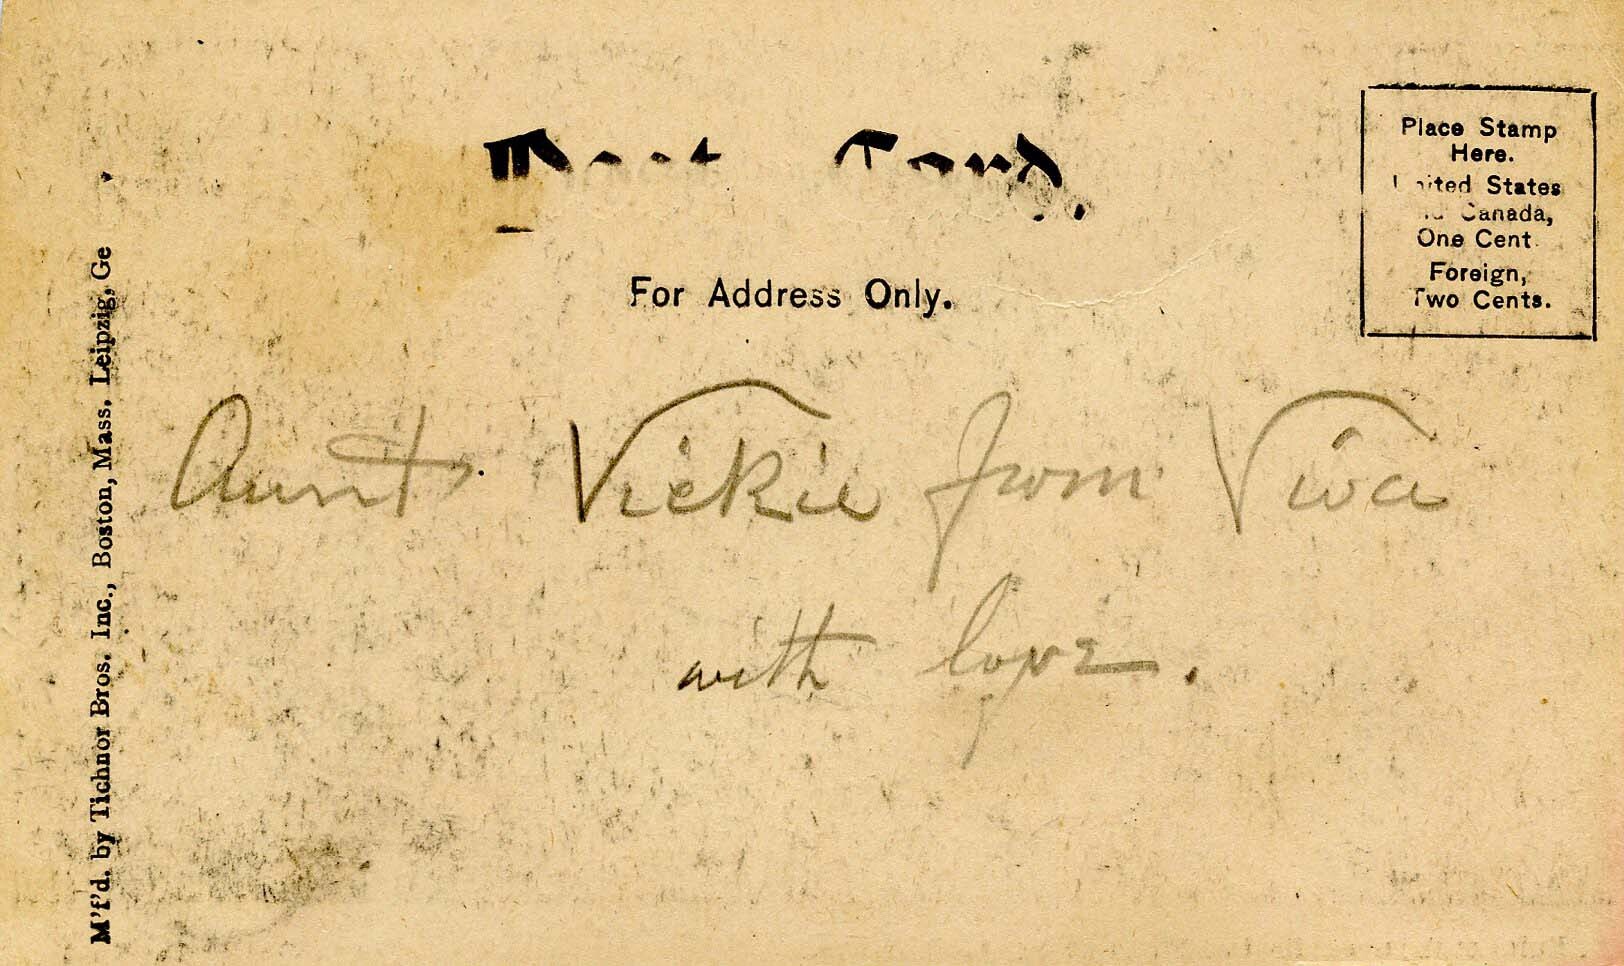 Post Card.
For Address Only.
Place Stamp
Here.
United States
and Canada,
One Cent.
Foreign,
Two Cents.
Aunt Vickie from Viva
with love.
M'f'd. by Tichnor Bros. Inc., Boston, Mass. Leipzig, Ge